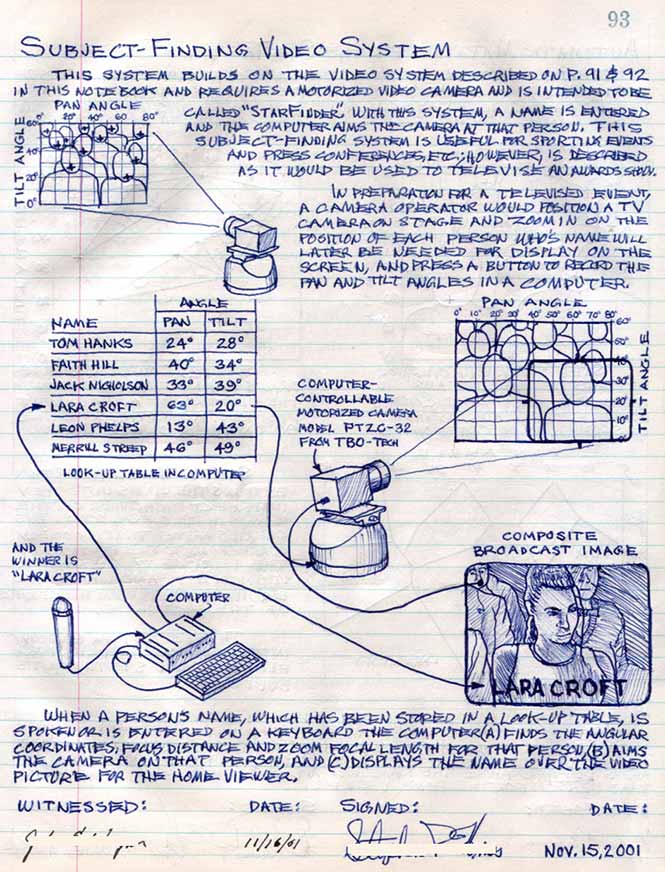 93
SUBJECT-FINDING VIDEO SYSTEM
THIS SYSTEM BUILDS ON THE VIDEO SYSTEM DESCRIBED ON P. 91 & 92
IN THIS NOTEBOOK AND REQUIRES A MOTORIZED VIDEO CAMERA AND IS INTENDED TO BE
CALLED "STARFINDER". WITH THIS SYSTEM, A NAME IS ENTERED
AND THE COMPUTER AIMS THE CAMERA AT THAT PERSON. THIS
SUBJECT-FINDING SYSTEM IS USEFUL FOR SPORTING EVENTS
AND PRESS CONFERENCES, ETC.; HOWEVER, IS DESCRIBED
AS IT WOULD BE USED TO TELEVISE AN AWARDS SHOW.
PAN ANGLE
0° 20° 40° 60° 80°
TILT ANGLE
60°
40°
20°
0°
IN PREPARATION FOR A TELEVISED EVENT,
A CAMERA OPERATOR WOULD POSITION A TV
CAMERA ON STAGE AND ZOOM IN ON THE
POSITION OF EACH PERSON WHO'S NAME WILL
LATER BE NEEDED FOR DISPLAY ON THE
SCREEN, AND PRESS A BUTTON TO RECORD THE
PAN AND TILT ANGLES IN A COMPUTER.
ANGLE
NAME PAN TILT
TOM HANKS 24° 28°
FAITH HILL 40° 34°
JACK NICHOLSON 33° 39°
LARA CROFT 63° 20°
LEON PHELPS 13° 43°
MERRILL STREEP 46° 49°
LOOK-UP TABLE IN COMPUTER
PAN ANGLE
0° 10° 20° 30° 40° 50° 60° 70° 80°
60°
30°
20°
10°
0°
TILT ANGLE
COMPUTER-
CONTROLLABLE
MOTORIZED CAMERA
MODEL PTZG-32
FROM TBO-TECH
AND THE
WINNER IS
"LARA CROFT"
COMPUTER
COMPOSITE
BROADCAST IMAGE
LARA CROFT
WHEN A PERSON'S NAME, WHICH HAS BEEN STORED IN A LOOK-UP TABLE, IS
SPOKEN OR IS ENTERED ON A KEYBOARD THE COMPUTER (A) FINDS THE ANGULAR
COORDINATES, FOCUS DISTANCE AND ZOOM FOCAL LENGTH FOR THAT PERSON, (B) AIMS
THE CAMERA ON THAT PERSON, AND (C) DISPLAYS THE NAME OVER THE VIDEO
PICTURE FOR THE HOME VIEWER.
WITNESSED: DATE: SIGNED: DATE:
11/16/01 NOV. 15, 2001